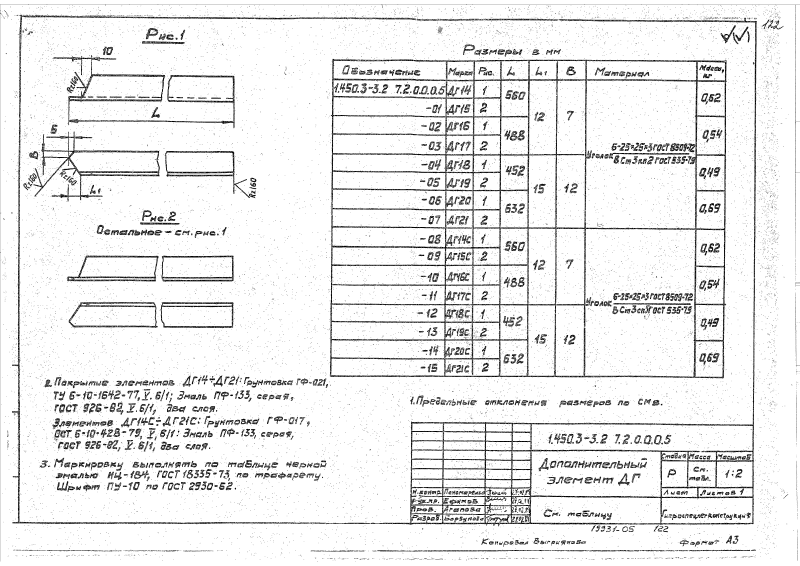 122
Рис.1
10
Rz160
L
Б
В
Rz160
Rz160
L₁
Rz160
Рис.2
Остальное – см. рис.1
Размеры в мм
Обозначение Марка Рис. L L₁ В Материал Масса, кг
1.450.3-3.2 7.2.0.0.0.5 ДГ14 1 560 12 7 0,62
-01 ДГ15 2
-02 ДГ16 1 488 0,54
-03 ДГ17 2
Уголок Б-25×25×3 ГОСТ 8509-72
В Ст3кп2 ГОСТ 535-79
-04 ДГ18 1 452 15 12 0,49
-05 ДГ19 2
-06 ДГ20 1 632 0,69
-07 ДГ21 2
-08 ДГ14С 1 560 12 7 0,62
-09 ДГ15С 2
-10 ДГ16С 1 488 0,54
-11 ДГ17С 2
Уголок Б-25×25×3 ГОСТ 8509-72
ГОСТ 535-79
-12 ДГ18С 1 452 15 12 0,49
-13 ДГ19С 2
-14 ДГ20С 1 632 0,69
-15 ДГ21С 2
2. Покрытие элементов ДГ14÷ДГ21: Грунтовка ГФ-021,
ТУ 6-10-1642-77, V. б/1; Эмаль ПФ-133, серая,
ГОСТ 926-82, V. б/1, два слоя.
Элементов ДГ14С÷ДГ21С: Грунтовка ГФ-017,
ОСТ 6-10-428-79, V. б/1: Эмаль ПФ-133, серая,
ГОСТ 926-82, V. б/1, два слоя.
3. Маркировку выполнять по таблице черной
эмалью НЦ-184, ГОСТ 18335-73, по трафарету.
Шрифт ПУ-10 по ГОСТ 2930-62.
1. Предельные отклонения размеров по
1.450.3-3.2 7.2.0.0.0.5
Дополнительный
элемент ДГ
Стадия Масса Масштаб
Р См. табл. 1:2
Лист Листов 1
Н.контр. Пономарева
Ефимов
Пров. Агапова
Разраб. Борзунова
См. таблицу
Гипроспецлегконструкция
19931-05 122
Копировал
Формат А3